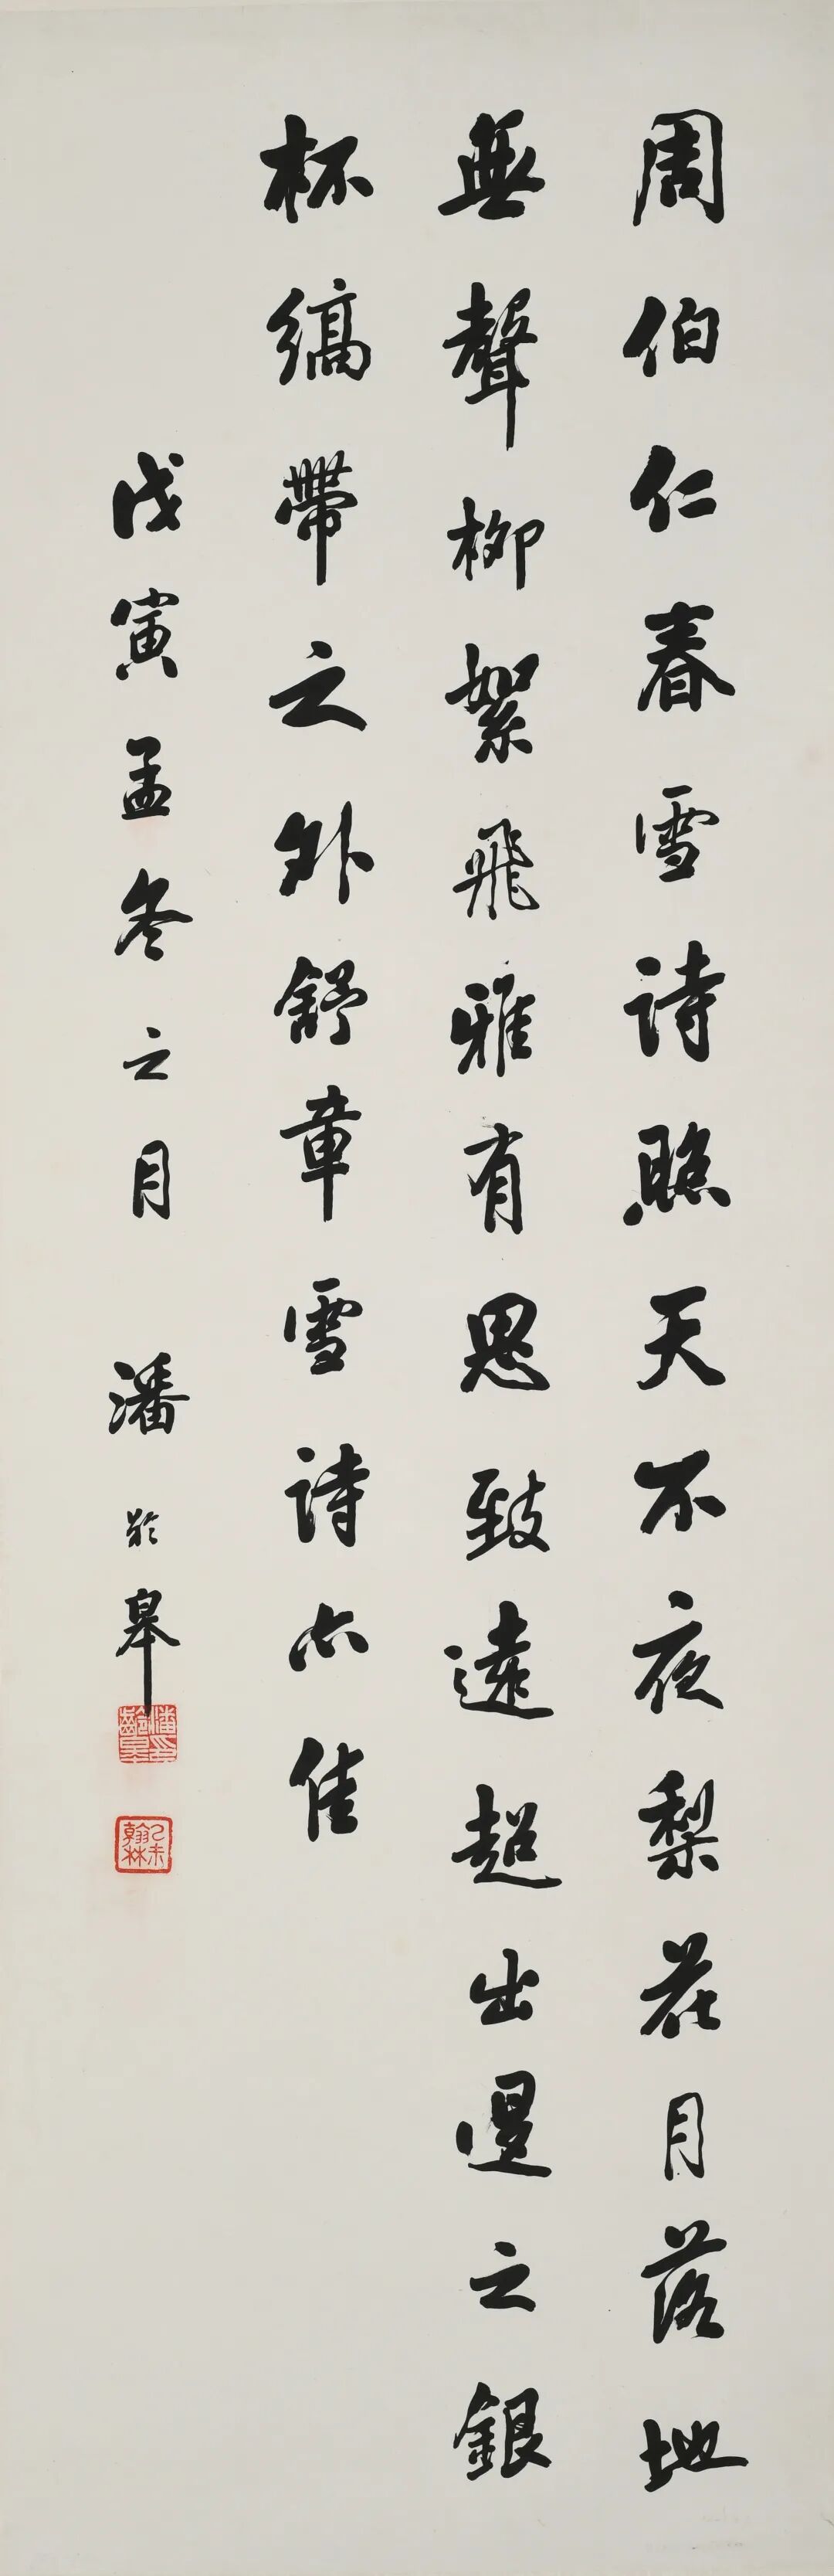 周伯仁春雪詩照天不夜梨花月落地
無聲柳絮飛雅有思致遠超出退之銀
杯縞帶之外舒章雪詩亦佳
戊寅孟冬之月 潘齡皋
潘齡皋印
乙未翰林